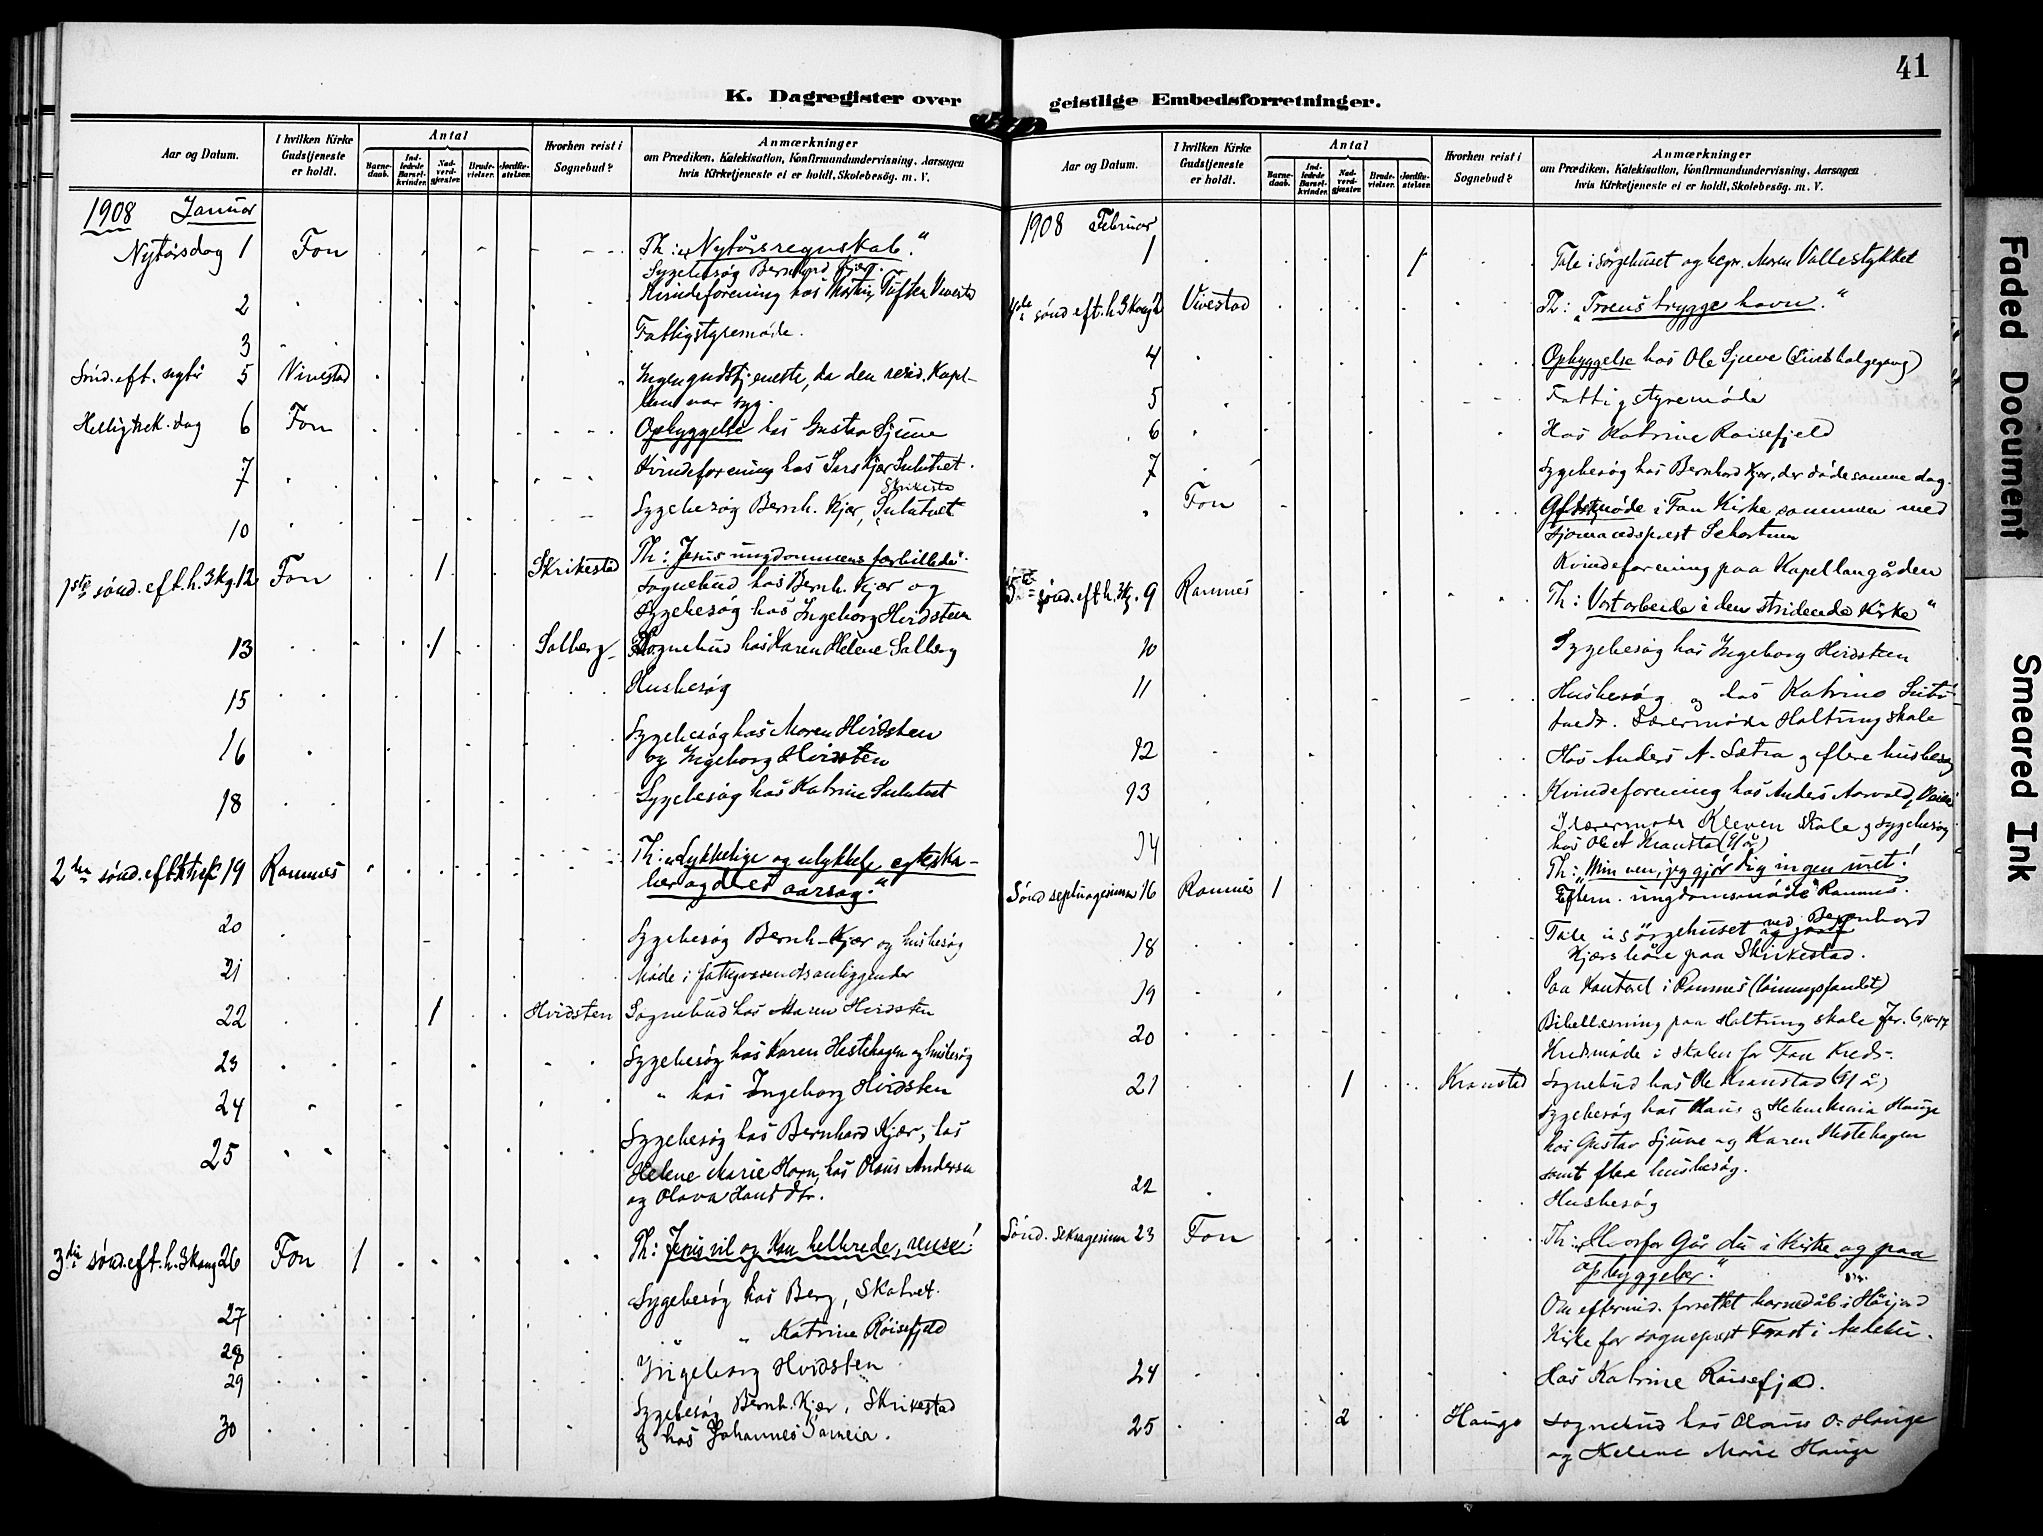 41
K. Dagregister over geistlige Embedsforretninger.
Aar og Datum.
I hvilken Kirke Gudstjeneste er holdt.
Antal
Barne-daab.
Ind-ledede Barsel-kvinder.
Nad-verd-gjæster.
Brude-vielser.
Jordfæ-stelser.
Hvorhen reist i Sognebud?
Anmærkninger
om Prædiken, Katekisation, Konfirmandundervisning, Aarsagen
hvis Kirketjeneste ei er holdt, Skolebesøg. m. V.
1908 Januar
Nytårsdag 1 Fon Th: „Nytårsregnskab."
Sygebesøg Bernhard Kjær.
2 Kvindeforening hos Tuften Vivestad
3 Fattigstyremøde.
Sønd. eft. nytår 5 Vivestad Ingen gudstjeneste, da den resid. Kapel-
lan var syg.
Helligtrek. dag 6 Fon Opbyggelse hos Gustav Sjuve
7 Kvindeforening hos Lars Kjær
Skrikesta
10 Sygebesøg Bernh. Kjær,
1ste sønd. eft. h. 3kg. 12 Fon 1 Skrikestad Th: Jesus ungdommens forbillede.
Sognebud hos Bernh. Kjær og
Sygebesøg hos Ingeborg Hvidsten
13 1 Solberg Sognebud hos Karen Helene Solberg
15 Husbesøg
16 Sygebesøg hos Maren Hvidsten
og Ingeborg Hvidsten
18 Sygebesøg hos Katrine
2den sønd. eft. 19 Ramnes Th: „Lykkelige og ulykkel. egteska-
ber og deres aarsag."
20 Sygebesøg Bernh. Kjær og husbesøg
21 Møde i fattigvæsendsanliggender
22 1 Hvidsten Sognebud hos Maren Hvidsten
23 Sygebesøg hos Karen Hestehagen og husbesøg
24 " hos Ingeborg Hvidsten
25 Sygebesøg hos Bernhard Kjær, hos
Helene Marie Horn, hos Olaus Andersen
og Olava Hansdtr.
3die sønd. eft. h. 3kong 26 Fon 1 Th: Jesus vil og kan helbrede, rense!
27 Sygebesøg hos Berg, Skatvet.
28 " " Katrine Röisefjeld
29 Ingeborg Hvidsten
30 Sygebesøg Bernh. Kjær, Skrikestad
og hos Johannes
Aar og Datum.
I hvilken Kirke Gudstjeneste er holdt.
Antal
Barne-daab.
Ind-ledede Barsel-kvinder.
Nad-verd-gjæster.
Brude-vielser.
Jordfæ-stelser.
Hvorhen reist i Sognebud?
Anmærkninger
om Prædiken, Katekisation, Konfirmandundervisning, Aarsagen
hvis Kirketjeneste ei er holdt, Skolebesøg. m. V.
1908 Februar
1 1 Tale i sørgehuset og begr. Maren Vallestykket
4de sønd. eft. h. 3kong 2 Vivestad Th: „Troens trygge havn."
4 Opbyggelse hos Ole Sjuve
5 Fattigstyremøde
6 Hos Katrine Röisefjeld
7 Sygebesøg hos Bernhard Kjær, der døde samme dag.
" Fon i Fon Kirke sammen med
Sjømandsprest
Kvindeforening paa Kapellangården
5te sønd. eft. h. 3kg. 9 Ramnes Th: Vort arbeide i den stridende Kirke"
10 Sygebesøg hos Ingeborg Hvidsten
11 Husbesøg og hos Katrine
Lærermøde Holtung skole
12 Hos Anders A. Sætra og flere husbesøg
13 Kvindeforening hos Anders Aarvold,
14 Lærermøde Kleven skole og sygebesøg
hos Ole Kranstad (91 år)
Sønd septuagesima 16 Ramnes 1 Th: „Min ven, jeg gjør dig ingen uret!
Eftern. ungdomsmøde Ramnes.
18 Tale i sørgehuset ved Bernhard
Kjærs båre paa Skrikestad.
19 Paa Kontoret i Ramnes
20 Bibellæsning paa Holtung skole Jer. 6,
Kredsmøde i skolen for Fon Kreds.
21 1 Kranstad Sognebud hos Ole Kranstad (91 år)
Sygebesøg hos Klaus og Helene Maria Hauge
hos Gustav Sjuve og Karen Hestehagen
samt flere husbesøg.
22 Husbesøg
Sønd. seksagesima 23 Fon Th: „Hvorfor går du i kirke og paa
opbyggelser."
Om eftermid. forrettet barnedåb i Höijord
Kirke for sogneprest i Andebu.
24 Hos Katrine Röisefjed.
25 2 Hauge Sognebud hos Olaus O. Hauge
og Helene Marie Hauge
Faded Document
Smeared Ink